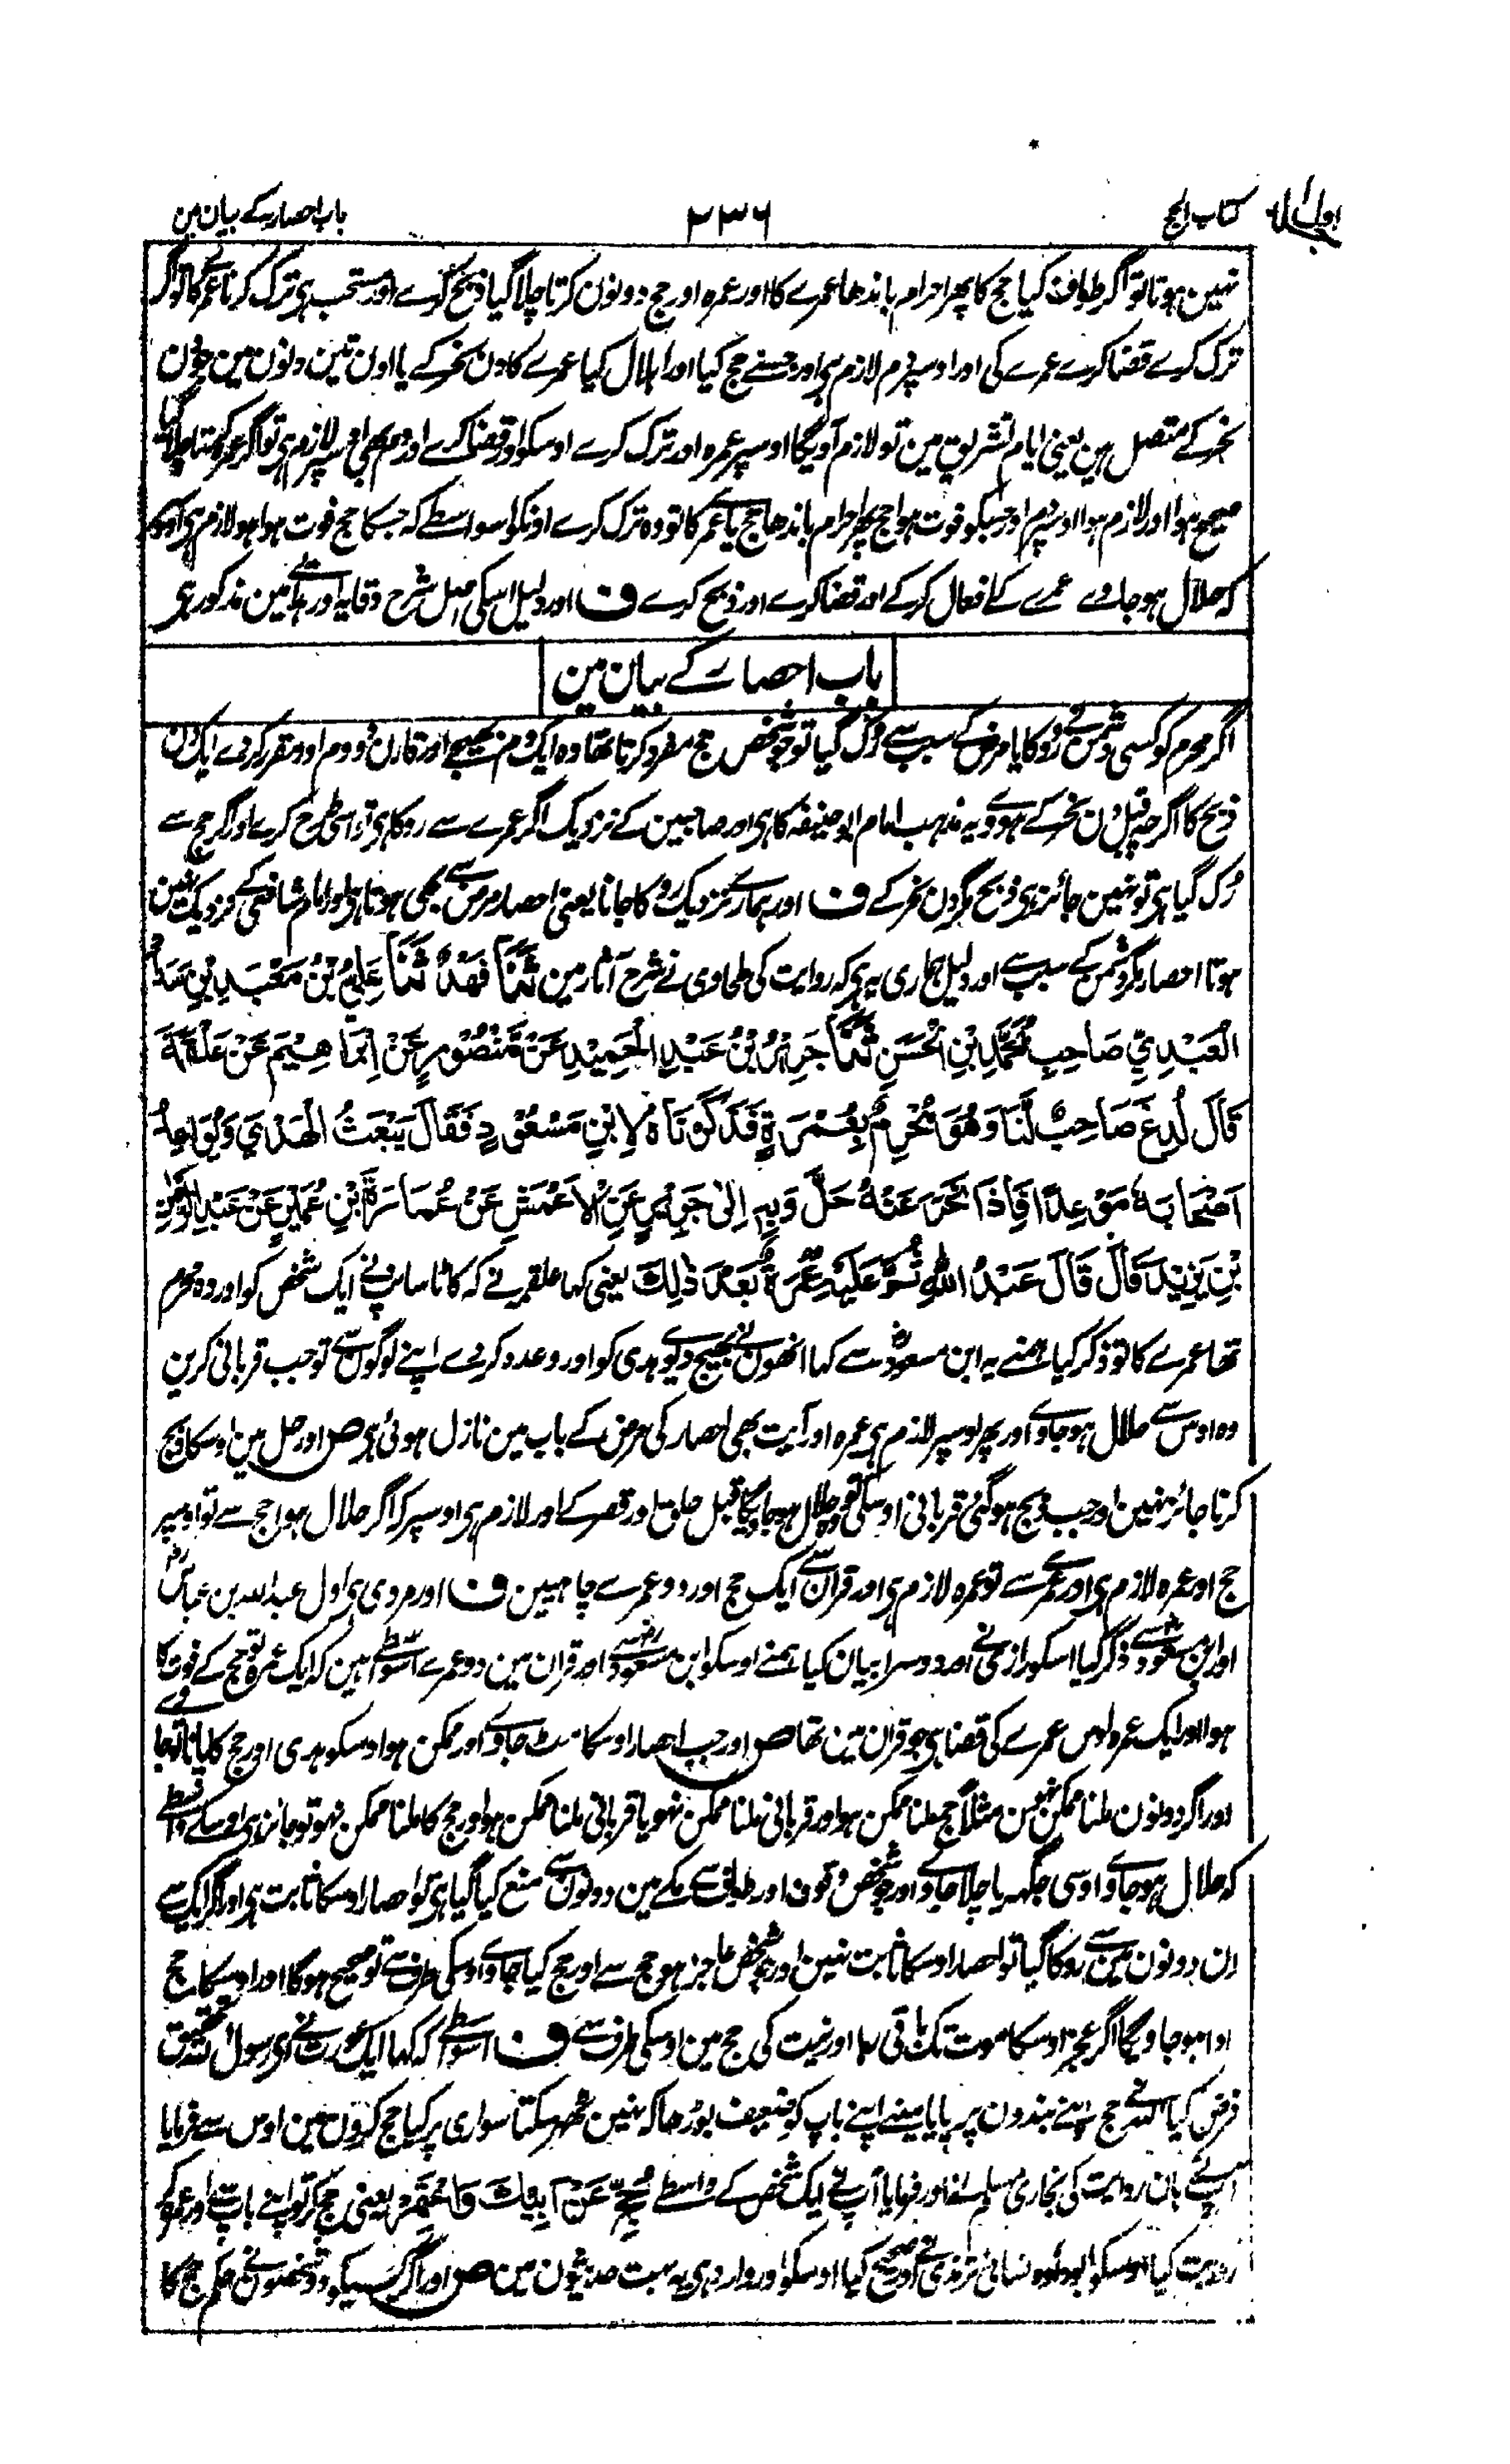 کتاب الحج ۲۳۶ باب احصار کے بیان مین
نہین ہوتا تو اگر طواف کیا حج کا پھر احرام باندھا عمرے کا اور عمرہ اور حج دونون کرتا چلا گیا ذبح کرے اور مستحب ہی ترک کرنا عمرے کا تو اگر
ترک کرے قضا کرے عمرے کی اور اوسپر دم لازم ہی اور جسنے حج کیا اور اہلال کیا عمرے کا دن نحر کے یا اون تین دنون مین جو دن
نحر کے متصل ہین یعنی ایام تشریق مین تو لازم آویگا اوسپر عمرہ اور ترک کرے اوسکو اور قضا کرے اور دم بھی اوسپر لازم ہی تو اگر عمرہ کرتا چلا گیا
صحیح ہوا اور لازم ہوا اوسپر دم اور جسکو فوت ہوا حج پھر احرام باندھا حج یا عمرے کا تو وہ ترک کرے اونکو اسواسطے کہ جسکا حج فوت ہوا ہو لازم ہی اوسکو
کہ حلال ہو جاوے عمرے کے افعال کر کے اور قضا کرے اور ذبح کرے ف اور دلیل اسکی اصل شرح وقایہ اور ہدایے مین مذکور ہی
باب احصار کے بیان مین
اگر محرم کو کسی دشمن نے روکا یا مرض کے سبب سے رک گیا تو جو شخص حج مفرد کرتا تھا وہ ایک دم بھیجے اور قارن دو دم اور مقرر کردے ایک دن
ذبح کا اگرچہ قبل دن نحر کے ہووے یہ مذہب امام ابوحنیفہ کا ہی اور صاحبین کے نزدیک اگر عمرے سے روکا ہی تو اسی طرح کرے اور اگر حج سے
رک گیا ہی تو نہین جائز ہی ذبح مگر دن نحر کے ف اور ہمارے نزدیک روکا جانا یعنی احصار مرض سے بھی ہوتا ہی اور امام شافعی کے نزدیک نہین
ہوتا احصار مگر دشمن کے سبب سے اور دلیل ہماری یہ ہی کہ روایت کی طحاوی نے شرح آثار مین ثَنَا فَهْدٌ ثَنَا عَلِيُّ بْنُ مَعْبَدِ بْنِ شَدَّادٍ
الْعَبْدِيُّ صَاحِبِ مُحَمَّدِ بْنِ الْحَسَنِ ثَنَا جَرِيْرُ بْنُ عَبْدِ الْحَمِيْدِ عَنْ مَنْصُوْرٍ عَنْ اِبْرَاهِيْمَ عَنْ عَلْقَمَةَ
قَالَ لُدِغَ صَاحِبٌ لَّنَا وَهُوَ مُحْرِمٌ بِعُمْرَةٍ فَذَكَرْنَاهُ لِابْنِ مَسْعُوْدٍ فَقَالَ يَبْعَثُ الْهَدْيَ وَيُوَاعِدُ
اَصْحَابَهٗ مَوْعِدًا فَاِذَا نَحَرَ عَنْهُ حَلَّ وَبِهٖ اِلٰى جَرِيْرٍ عَنِ الْاَعْمَشِ عَنْ عُمَارَةَ بْنِ عُمَيْرٍ عَنْ عَبْدِ الرَّحْمٰنِ
بْنِ يَزِيْدَ قَالَ قَالَ عَبْدُ اللّٰهِ ثُمَّ عَلَيْهِ عُمْرَةٌ بَعْدَ ذٰلِكَ یعنی کہا علقمہ نے کہ کاٹا سانپ نے ایک شخص کو اور وہ محرم
تھا عمرے کا تو ذکر کیا ہمنے یہ ابن مسعود سے کہا انھون نے بھیج دیوے ہدی کو اور وعدہ کردے اپنے لوگون سے تو جب قربانی کرین
وہ اوس سے حلال ہو جاوے اور پھر اوسپر لازم ہی عمرہ اور آیت بھی احصار کی مرض کے باب مین نازل ہوئی ہی ص اور حل مین اوسکا ذبح
کرنا جائز نہین اور جب ذبح ہوگئی قربانی اوسکی تو وہ حلال ہو جاویگا قبل حلق اور قصر کے اور لازم ہی اوسپر کہ اگر حلال ہوا حج سے تو اوسپر
حج اور عمرہ لازم ہی اور عمرے سے تو عمرہ لازم ہی اور قران سے ایک حج اور دو عمرے چاہیین ف اور مروی ہی اول عبداللہ بن عباس
اور ابن مسعود سے ذکر کیا اسکو رازی نے اور دوسرا بیان کیا ہمنے اوسکو ابن مسعود سے اور قران مین دو عمرے اسواسطے ہین کہ ایک عمرہ تو حج کے فوت کا
ہوا اور ایک عمرہ اوس عمرے کی قضا ہی جو قران مین تھا ص اور جب احصار اوسکا مٹ جاوے اور ممکن ہو اوسکو ہدی اور حج کا پانا تو جاوے
اور اگر دونون ملنا ممکن نہین مثلاً حج ملنا ممکن ہو اور قربانی ملنا ممکن نہو یا قربانی ملنا ممکن ہو اور حج کا ملنا ممکن نہو تو جائز ہی اوسکے واسطے
کہ حلال ہو جاوے اوسی جگہہ یا چلا جاوے اور جو شخص وقوف اور طواف سے مکے مین دونون سے منع کیا گیا ہی تو احصار اوسکا ثابت ہی اور اگر ایک سے
ان دونون مین سے روکا گیا تو احصار اوسکا ثابت نہین اور جو شخص عاجز ہو حج سے اور حج کیا جاوے اوسکی طرف سے تو صحیح ہوگا اور اوسکا حج
ادا ہو جاویگا اگر عجز اوسکا موت تک باقی رہا اور نیت کی حج مین اوسکی طرف سے ف اسواسطے کہ کہا ایک عورت نے ای رسول اللہ تحقیق
فرض کیا اللہ نے حج اپنے بندون پر پایا مینے اپنے باپ کو ضعیف بوڑھا کہ نہین ٹھہر سکتا سواری پر کیا حج کرون مین اوس سے فرمایا
آپنے ہان روایت کی بخاری مسلم نے اور فرمایا آپنے ایک شخص کے واسطے حُجَّ عَنْ اَبِيْكَ وَاعْتَمِرْ یعنی حج کر تو اپنے باپ سے اور عمرہ کر
روایت کیا اوسکو ابوداود نسائی ترمذی نے اور صحیح کیا اوسکو اور وارد ہی یہ بہت حدیثون مین ص اور اگر کسیکو دو شخصون نے حکم حج کا